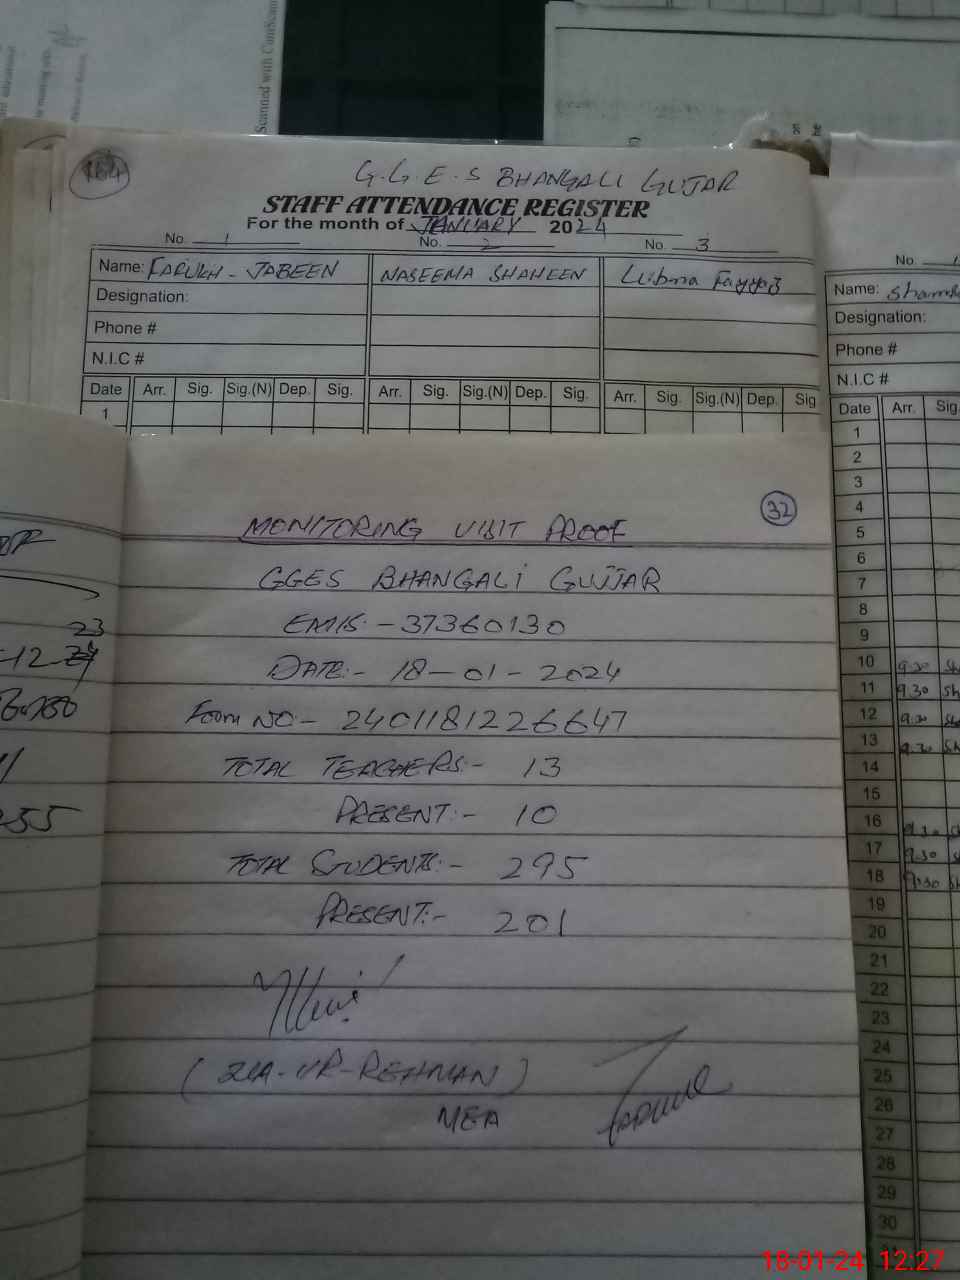 Scanned with CamScan
164
G.G.E.S BHANGALI GUJAR
STAFF ATTENDANCE REGISTER
For the month of JANUARY 2024
No. 1 No. 2 No. 3
Name: FARUKH-JABEEN NASEEMA SHAHEEN Lubna Fayyaz
Designation:
Phone #
N.I.C #
Date Arr. Sig. Sig.(N) Dep. Sig. Arr. Sig. Sig.(N) Dep. Sig. Arr. Sig. Sig.(N) Dep. Sig
1
No.
Name:
Designation:
Phone #
N.I.C #
Date Arr. Sig.
1
2
3
4
5
6
7
8
9
10 9.30
11 9.30
12 9.30
13 9.30
14
15
16 9.30
17 9.30
18 9:30
19
20
21
22
23
24
25
26
27
28
29
30
32
MONITORING VISIT PROOF
GGES BHANGALI GUJJAR
EMIS:-37360130
DATE:- 18-01-2024
Form NO:- 2401181226647
TOTAL TEACHERS:- 13
PRESENT:- 10
TOTAL STUDENTS:- 295
PRESENT:- 201
(ZIA-UR-REHMAN)
MEA
23
-12-
255
18-01-24 12:27